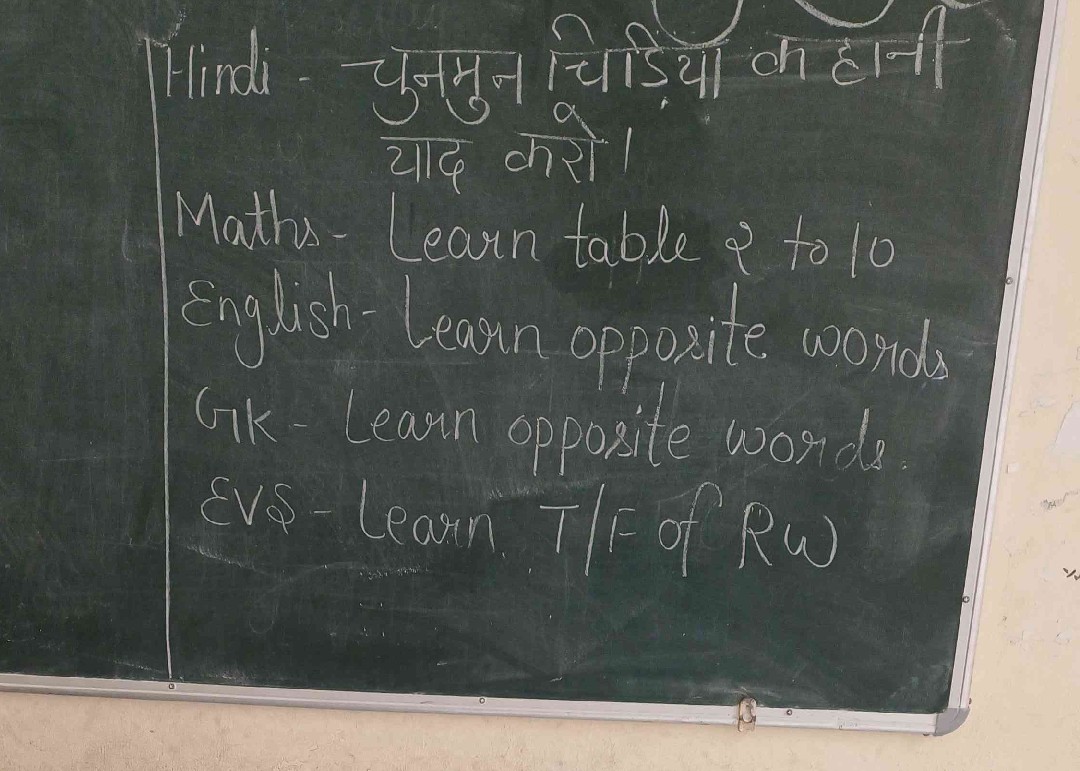 Hindi - चुनमुन चिड़िया कहानी
याद करो।
Maths - Learn table 2 to 10
English - Learn opposite words
GK - Learn opposite words.
EVS - Learn T/F of RW